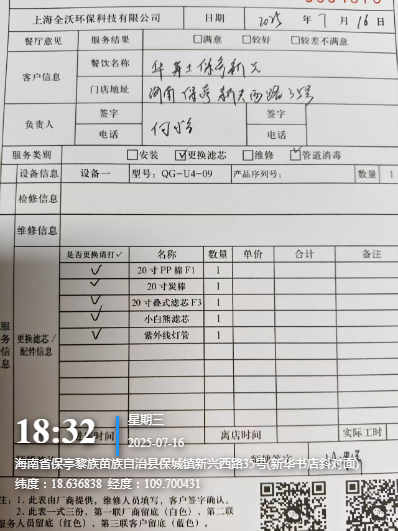 上海全沃环保科技有限公司 日期 2025 年 7 月 16 日
餐厅意见 服务结果 □满意 □较好 □较差不满意
客户信息 餐饮名称 华莱士保亭新兴
门店地址 海南 保亭 新兴西路 35号
负责人 签字 签字
电话 电话
服务类别 □安装 ☑更换滤芯 □维修 ☑管道消毒
设备信息 设备一 型号：QG-U4-09 产品序列号： 数量 1
检修信息
维修信息
服务信息 更换滤芯/配件信息 是否更换请打✓ 名称 数量 单价 合计 备注
✓ 20寸PP棉F1 1
✓ 20寸炭棒 1
✓ 20寸叠式滤芯F3 1
✓ 小白熊滤芯 1
✓ 紫外线灯管 1
时间 离店时间 实际工时
18:32 星期三
2025-07-16
海南省保亭黎族苗族自治县保城镇新兴西路35号(新华书店斜对面)
纬度：18.636838 经度：109.700431
注：1. 此表由厂商提供，维修人员填写，客户签字确认。
2. 此表一式三份，第一联厂商留底（白色）、第二联
服务人员留底（红色）、第三联客户留底（蓝色）。